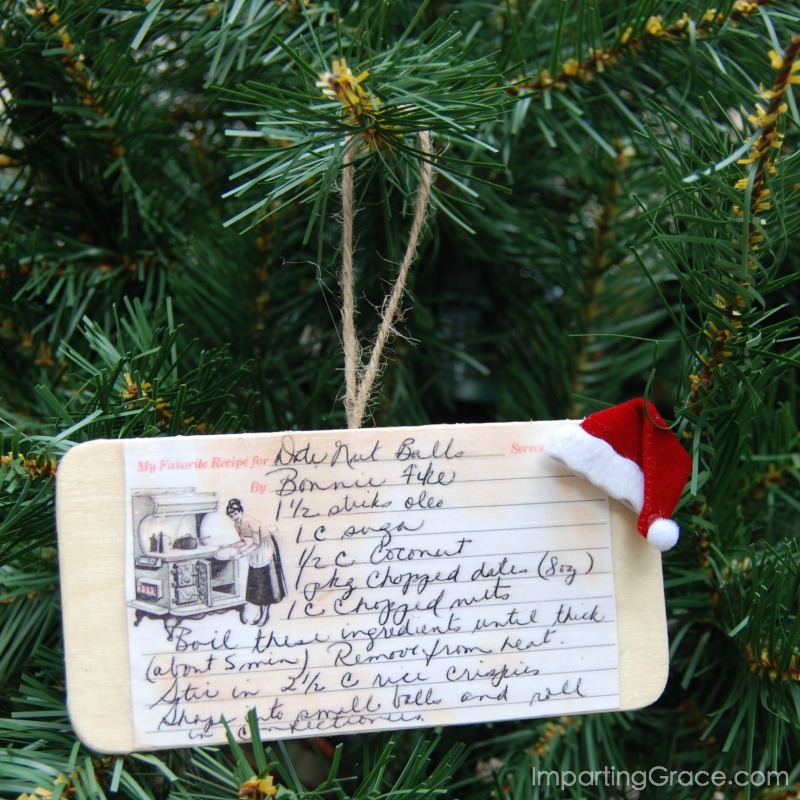 My Favorite Recipe for Date Nut Balls Serves
By Bonnie Fike
1 1/2 stiks oleo
1 c suga
1/2 c Coconut
1 pkg chopped dates (8oz)
1 c chopped nuts
Boil these ingredients until thick
(about 5 min) Remove from heat.
Stir in 2 1/2 c rice crispies
Shape into small balls and roll
in confectioners.
ImpartingGrace.com